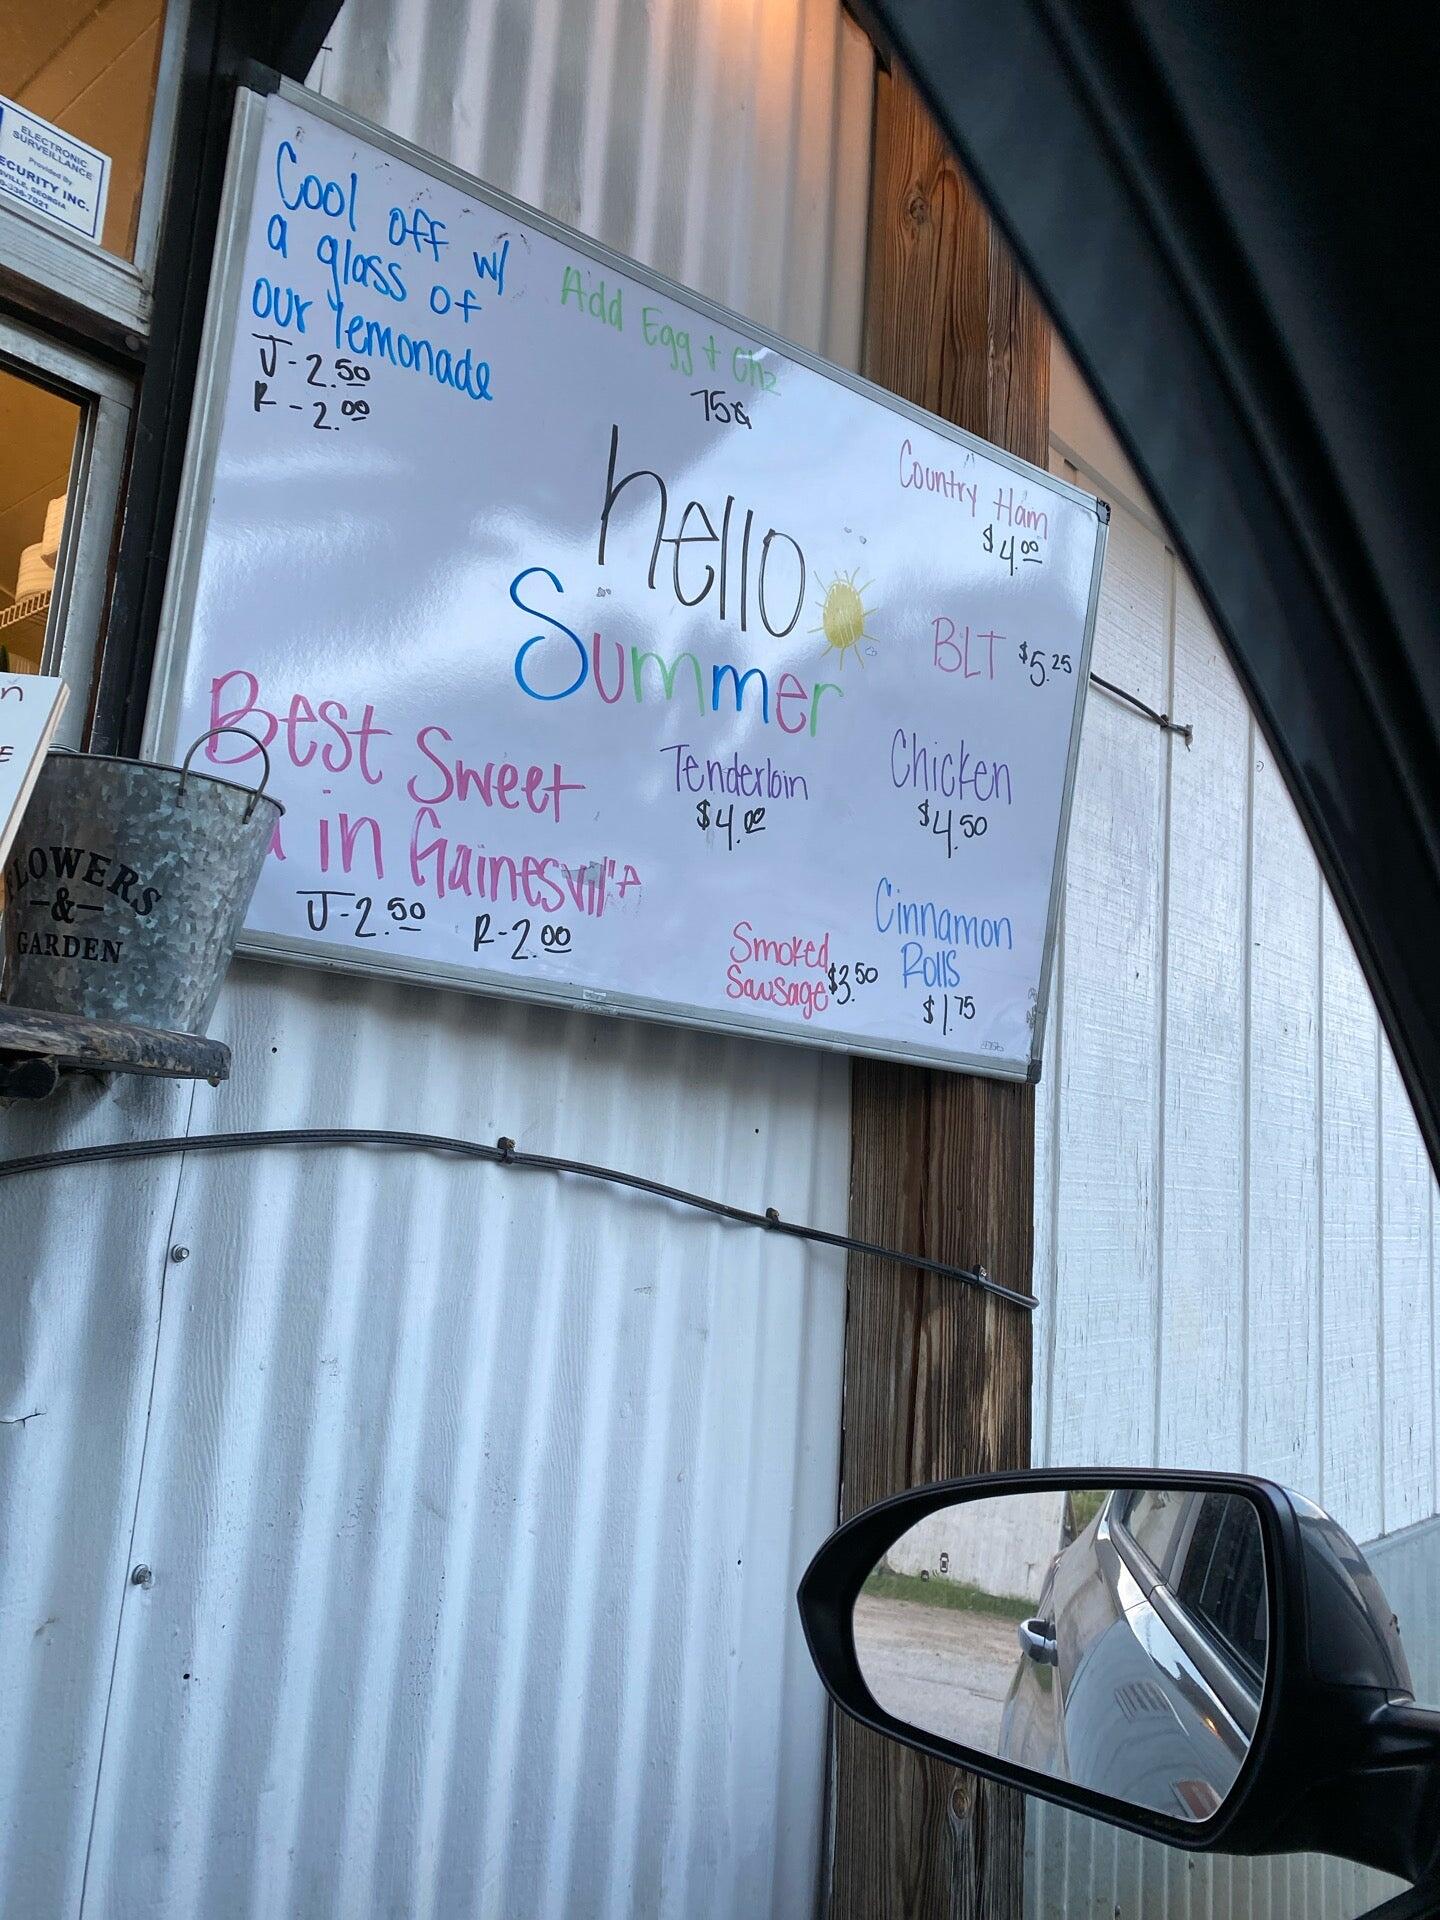 ELECTRONIC
SURVEILLANCE
Provided By
ECURITY INC.
SVILLE, GEORGIA
0-336-7021
Cool off w/
a glass of
our lemonade
J-2.50
R-2.00
Add Egg + Chz
75¢
hello
Summer
Country Ham
$4.00
BLT $5.25
Best Sweet
a in Gainesville
J-2.50 R-2.00
Tenderloin
$4.00
Chicken
$4.50
Smoked
Sausage $3.50
Cinnamon
Rolls
$1.75
FLOWERS
-&-
GARDEN
n
E